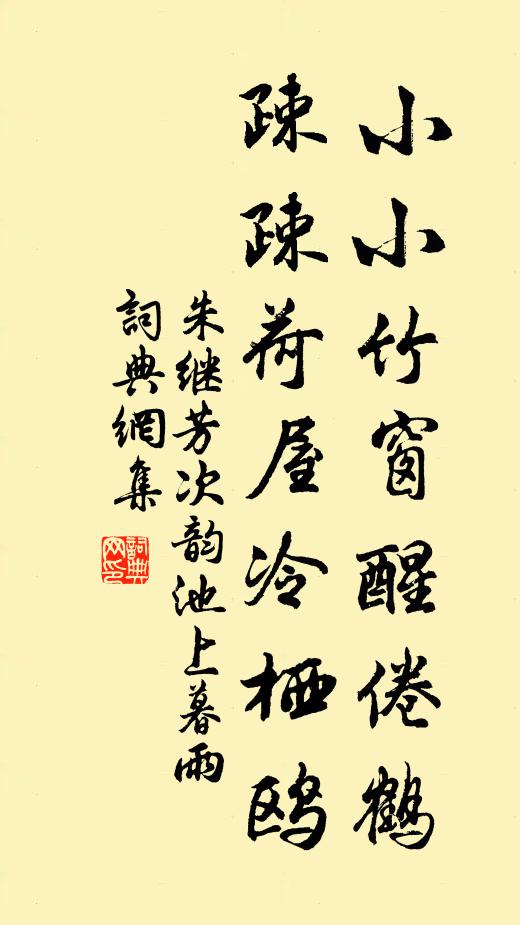 小小竹窗醒倦鶴
疎疎荷屋冷栖鸥
朱继芳次韵池上暮雨
詞典網集
詞典網印